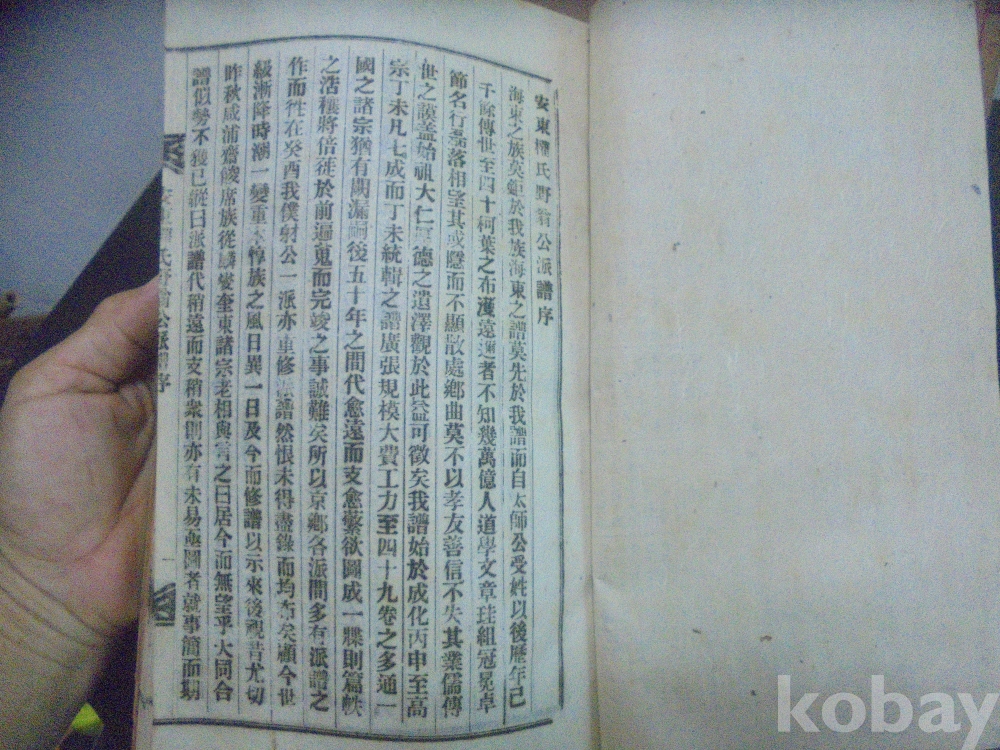 安東權氏野翁公派譜序
海東之族莫鉅於我族海東之譜莫先於我譜而自太師公受姓以後歷年已
千餘傳世至四十柯葉之布濩遠邇者不知幾萬億人道學文章珪組冠冕卓
節名行磊落相望其或隱而不顯散處鄉曲莫不以孝友善信不失其業儒傳
世之謨蓋始祖大仁厚德之遺澤觀於此益可徵矣我譜始於成化丙申至高
宗丁未凡七成而丁未統輯之譜廣張規模大費工力至四十九卷之多通一
國之諸宗猶有闕漏嗣後五十年之間代愈遠而支愈蘩欲圖成一牒則篇帙
之浩穰將倍蓰於前遍蒐而完竣之事誠難矣所以京鄉各派間多有派譜之
作而往在癸酉我僕射公一派亦重修派譜然恨未得盡錄而均布矣顧今世
級漸降時潮一變重本惇族之風日異一日及今而修譜以示來後視昔尤切
昨秋咸浦齋餕席族從麟燮奎東諸宗老相與言之曰居今而無望乎大同合
譜似勢不獲已縱曰派譜代稍遠而支稍衆則亦有未易亟圖者就事簡而期
氏野翁公派譜序
一
kobay